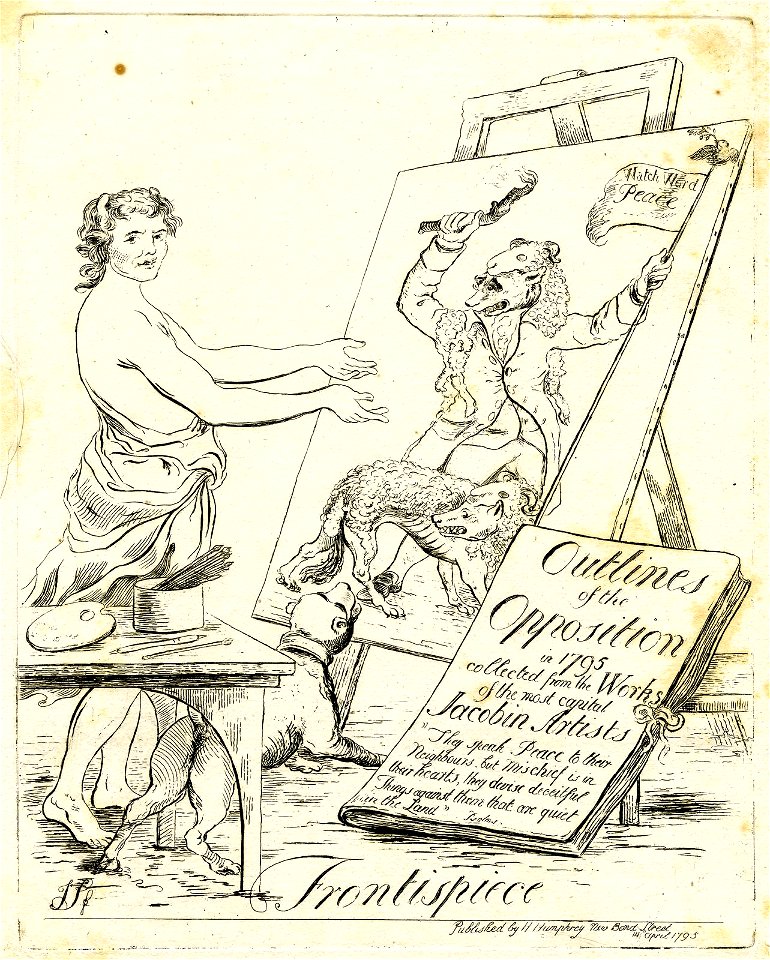 Watch Word
Peace
Outlines
of the
Opposition
in 1795
collected from the Works
of the most capital
Jacobin Artists
"They speak Peace to their
Neighbours, but Mischief is in
their hearts, they devise deceitful
Things against them that are quiet
in the Land"
Psalms.
JSf
Frontispiece
Published by H Humphrey New Bond Street
April 1795